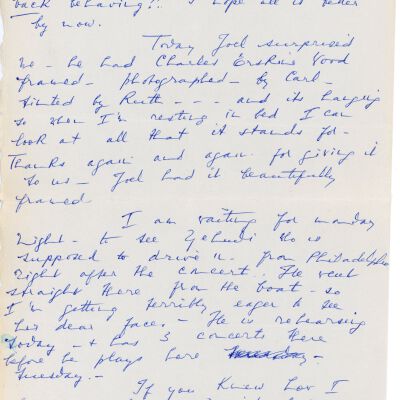 back behaving!! I hope all is better
by now.
Today Joel surprised
me - he had Charles Erskine Wood
framed - photographed - by Carl -
tinted by Ruth - - - and its hanging
so when I'm resting in bed I can
look at all that it stands for -
Thanks again and again for giving it
to us - Joel had it beautifully
framed -
I am waiting for monday
night - to see Yehudi who is
supposed to drive in from Philadelphia
right after the concert.. He went
straight there from the boat - so
I'm getting terribly eager to see
his dear face. - He is rehearsing
today - + has 3 concerts there
before he plays here
Tuesday. -
If you knew how I